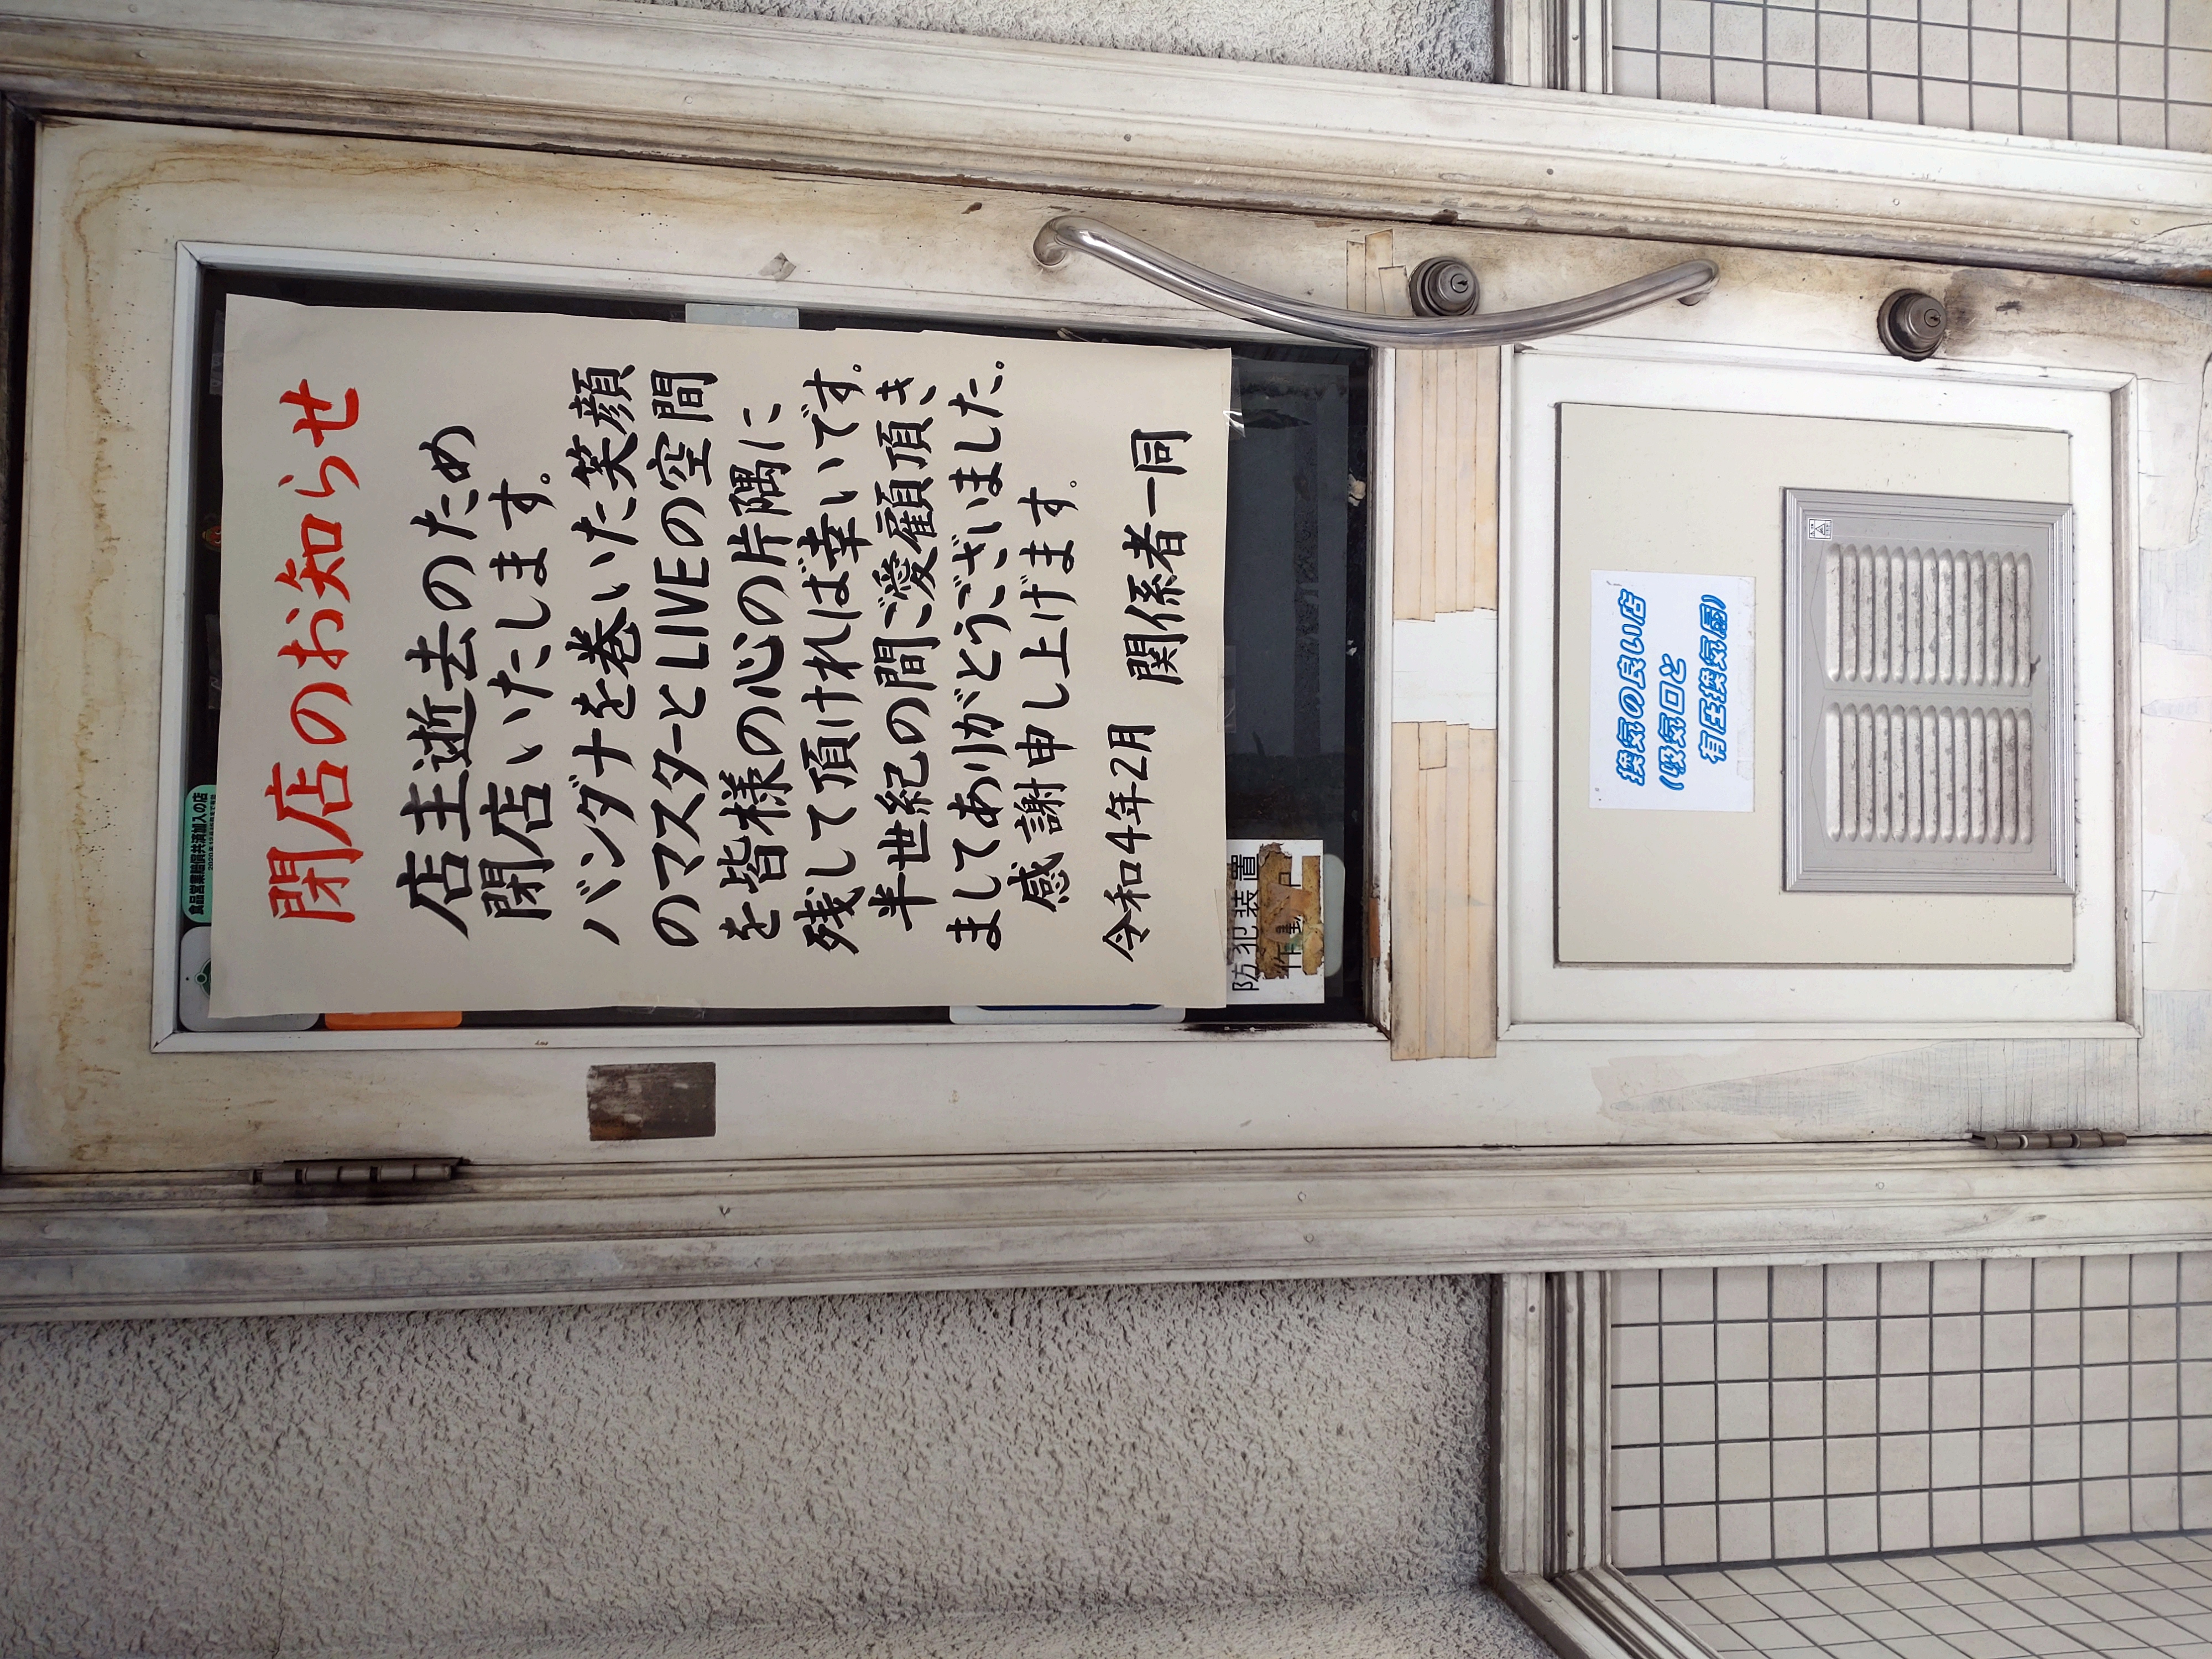 食品営業賠償共済加入の店
閉店のお知らせ
店主逝去のため
閉店いたします。
バンダナを巻いた笑顔
のマスターとLIVEの空間
を皆様の心の片隅に
残して頂ければ幸いです。
半世紀の間ご愛雇頂き
ましてありがとうございました。
感謝申し上げます。
令和4年2月 関係者一同
防犯装置
作動
換気の良い店
(吸気口と
有圧換気扇)